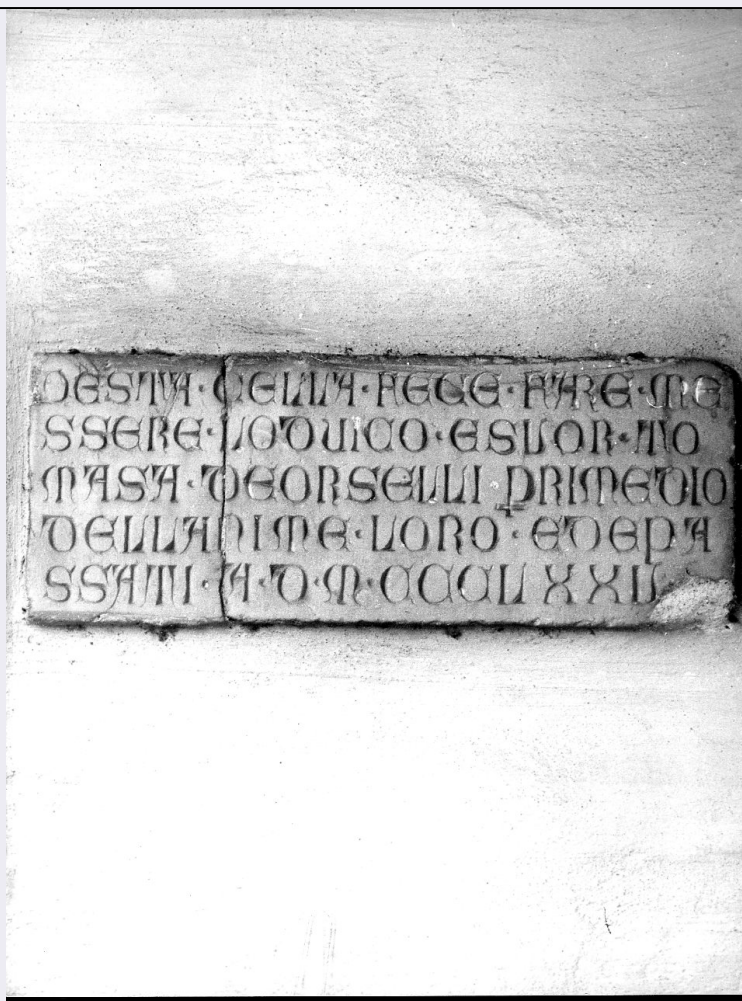 QESTA · CELLA · FECE · FARE · ME
SSERE · LODUICO · E SUOR · TO
MASA · DEORSELLI PRIMEDIO
DELLANIME · LORO · EDEPA
SSATI · A · D · M · CCCLXXII